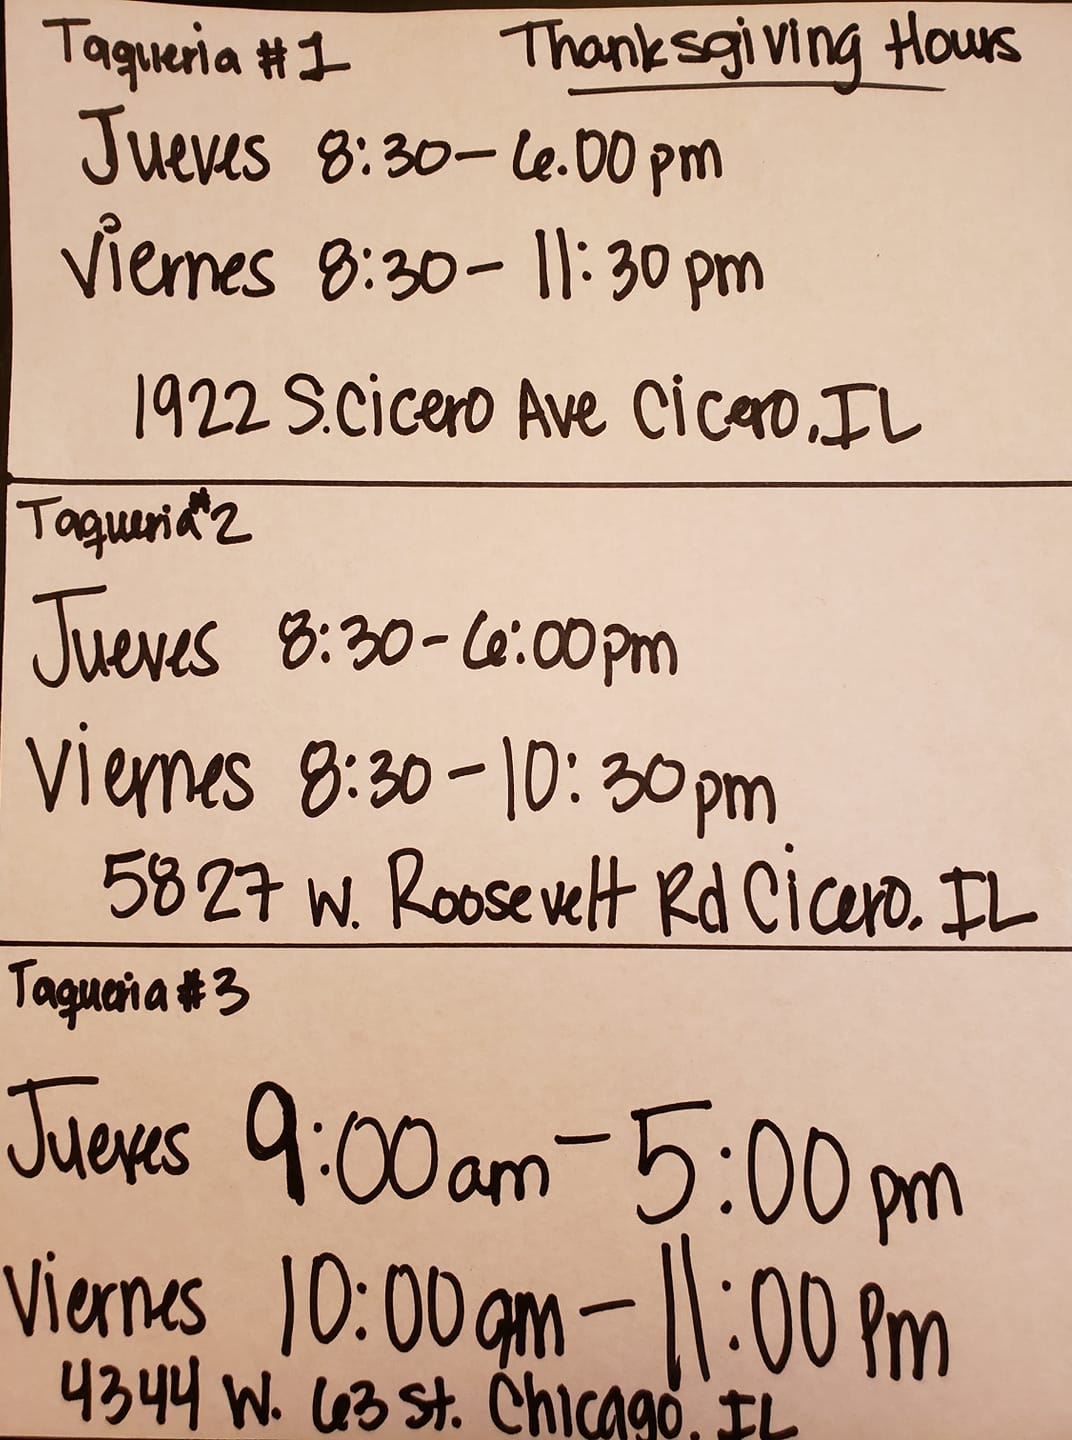 Taqueria #1 Thanksgiving Hours
Jueves 8:30-6.00pm
Viernes 8:30-11:30pm
1922 S.Cicero Ave Cicero, IL
Taqueria #2
Jueves 8:30-6:00pm
Viernes 8:30-10:30pm
5827 W. Roosevelt Rd Cicero, IL
Taqueria #3
Jueves 9:00am-5:00pm
Viernes 10:00am-11:00Pm
4344 W. 63 St. Chicago, IL